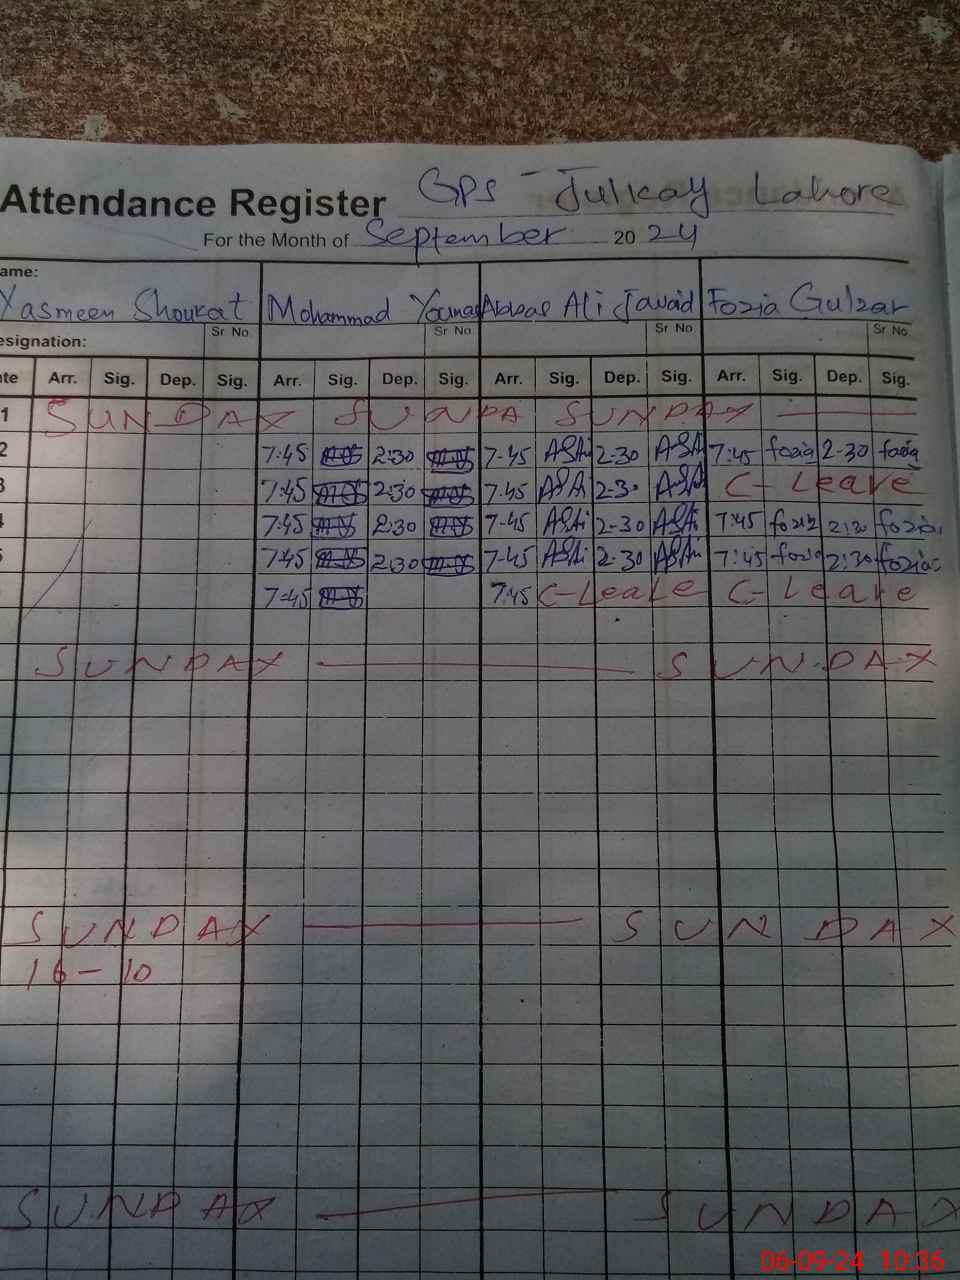 Attendance Register GPS - Julkay Lahore
For the Month of September 2024
ame:
Yasmeen Shoukat Mohammad Younas Abbas Ali Javaid Fozia Gulzar
Sr No. Sr No. Sr No. Sr No.
esignation:
te Arr. Sig. Dep. Sig. Arr. Sig. Dep. Sig. Arr. Sig. Dep. Sig. Arr. Sig. Dep. Sig.
1 SUNDAY SUNDA SUNDAY
2 7:45 2:30 7-45 2-30 7:45 fozia 2-30 fozia
3 7:45 2:30 7-45 2-30 C-Leave
7:45 2:30 7-45 2-30 7:45 fozia 2:30 fozia
7:45 2:30 7-45 2-30 7:45 fozia 2:30 fozia
7:45 7:45 C-Leave C-Leave
SUNDAY SUNDAY
SUNDAY SUNDAY
16-10
SUNDAY SUNDAY
06-09-24 10:36